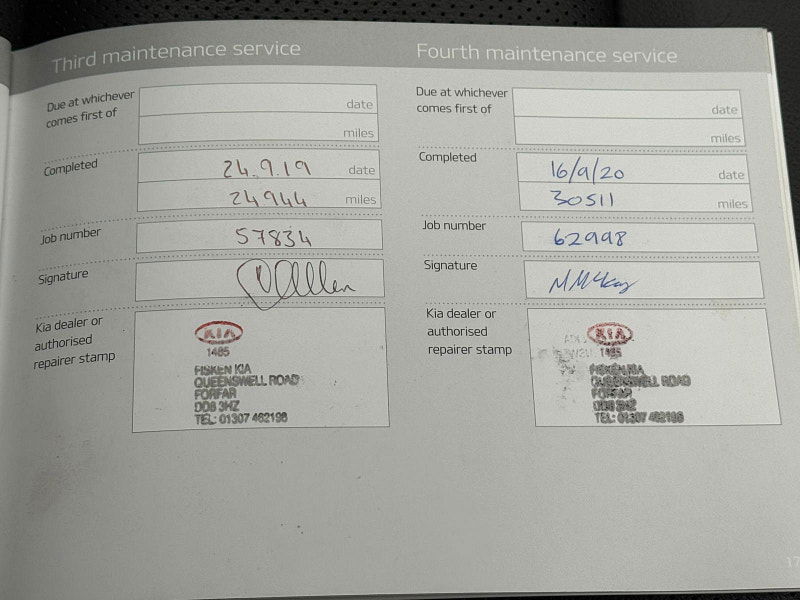 Third maintenance service
Due at whichever
comes first of
date
miles
Completed
24.9.19 date
24944 miles
Job number
57834
Signature
Kia dealer or
authorised
repairer stamp
KIA
1485
FISKEN KIA
QUEENSWELL ROAD
FORFAR
DD8 3HZ
TEL: 01307 462198
Fourth maintenance service
Due at whichever
comes first of
date
miles
Completed
16/9/20 date
30511 miles
Job number
62998
Signature
Kia dealer or
authorised
repairer stamp
KIA
1485
FISKEN KIA
QUEENSWELL ROAD
FORFAR
DD8 3HZ
TEL: 01307 462198
17